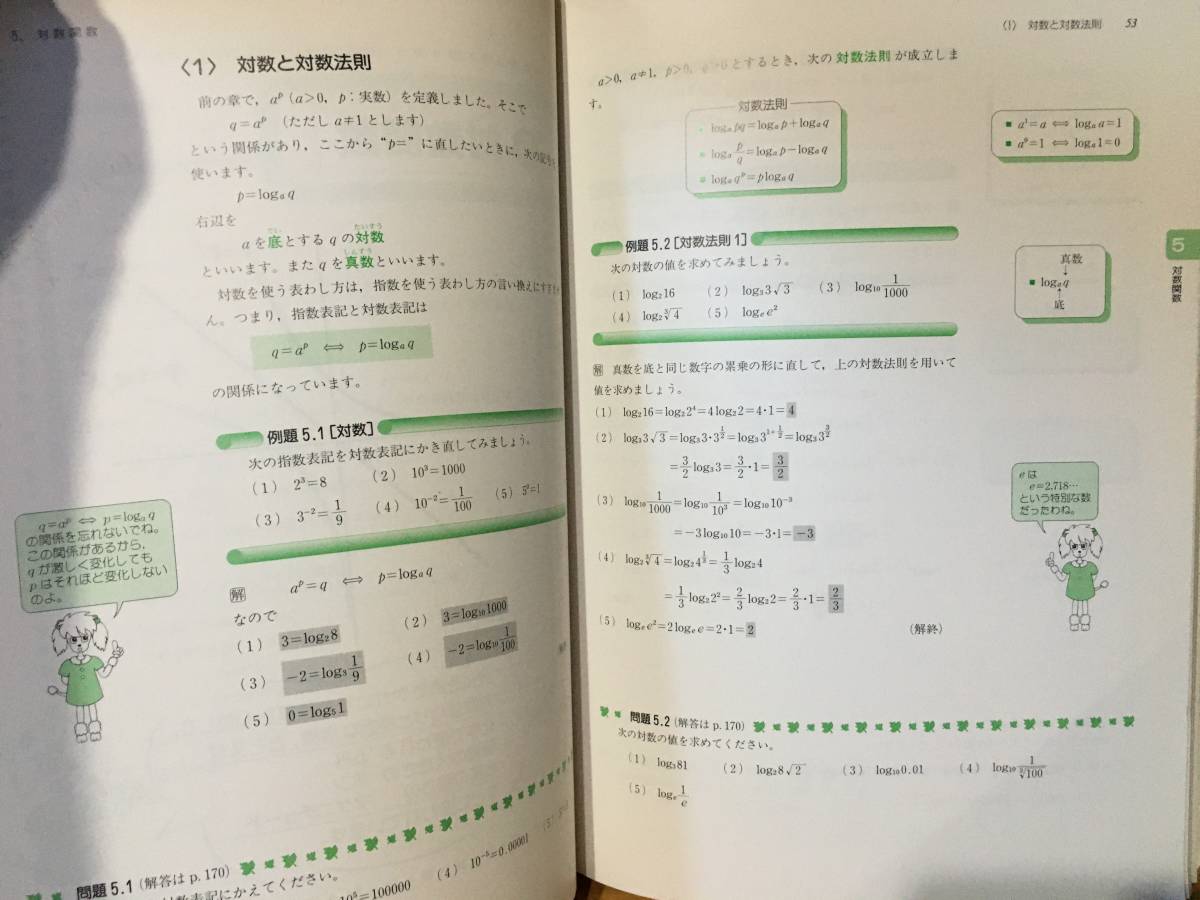 5. 対数関数
〈1〉 対数と対数法則
前の章で，aᵖ（a>0，p：実数）を定義しました。そこで
q=aᵖ （ただし a≠1 とします）
という関係があり，ここから “p=” に直したいときに，次の記号を
使います。
p=logₐ q
右辺を
a を底とする q の対数
てい たいすう
といいます。また q を真数といいます。
しんすう
対数を使う表わし方は，指数を使う表わし方の言い換えにすぎませ
ん。つまり，指数表記と対数表記は
q=aᵖ ⟺ p=logₐ q
の関係になっています。
例題 5.1［対数］
次の指数表記を対数表記にかき直してみましょう。
（1） 2³=8 （2） 10³=1000
（3） 3⁻²=1/9 （4） 10⁻²=1/100 （5） 5⁰=1
解 aᵖ=q ⟺ p=logₐ q
なので
（1） 3=log₂8 （2） 3=log₁₀1000
（3） −2=log₃ 1/9 （4） −2=log₁₀ 1/100
（5） 0=log₅1
q=aᵖ ⟺ p=logₐ q
の関係を忘れないでね。
この関係があるから，
q が激しく変化しても
p はそれほど変化しない
のよ。
問題 5.1（解答は p.170）
対数表記にかえてください。
10⁵=100000 （4） 10⁻⁵=0.00001 （5）
〈1〉 対数と対数法則 53
a>0，a≠1，p>0，q>0とするとき，次の対数法則が成立しま
す。
対数法則
logₐ pq=logₐ p+logₐ q
logₐ p/q=logₐ p−logₐ q
logₐ qᵖ=p logₐ q
a¹=a ⟺ logₐ a=1
a⁰=1 ⟺ logₐ 1=0
例題 5.2［対数法則 1］
次の対数の値を求めてみましょう。
（1） log₂16 （2） log₃3√3 （3） log₁₀ 1/1000
（4） log₂∛4 （5） logₑ e²
真数
↓
logₐ q
↑
底
5
対数関数
解 真数を底と同じ数字の累乗の形に直して，上の対数法則を用いて
値を求めましょう。
（1） log₂16=log₂2⁴=4 log₂2=4・1=4
（2） log₃3√3=log₃3・3^(1/2)=log₃3^(1+1/2)=log₃3^(3/2)
=3/2 log₃3=3/2・1=3/2
（3） log₁₀ 1/1000=log₁₀ 1/10³=log₁₀10⁻³
=−3 log₁₀10=−3・1=−3
（4） log₂∛4=log₂4^(1/3)=1/3 log₂4
=1/3 log₂2²=2/3 log₂2=2/3・1=2/3
（5） logₑ e²=2 logₑ e=2・1=2 （解終）
e は
e=2.718…
という特別な数
だったわね。
問題 5.2（解答は p.170）
次の対数の値を求めてください。
（1） log₃81 （2） log₂8√2 （3） log₁₀0.01 （4） log₁₀
（5） logₑ 1/e